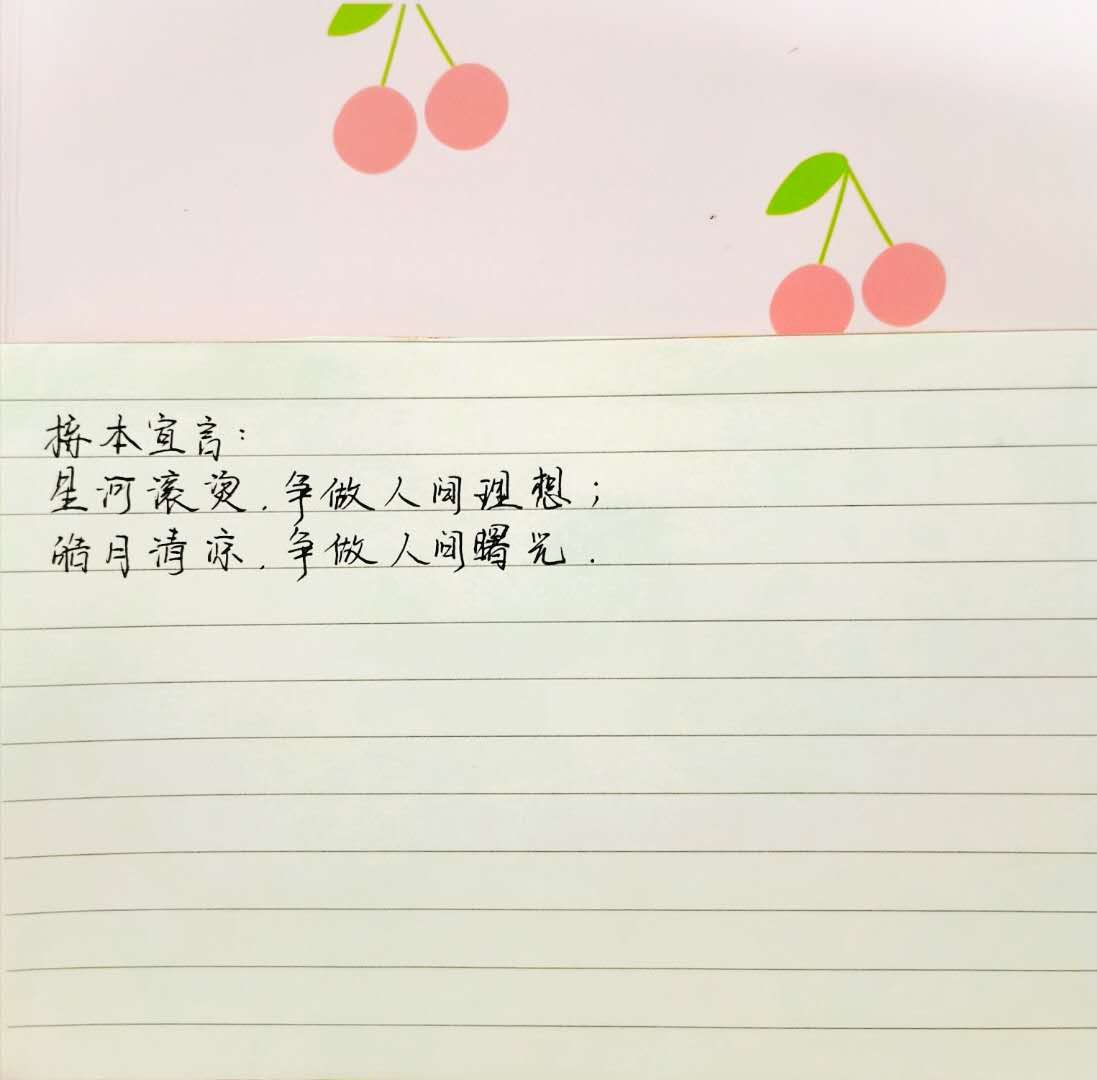 接本宣言:
星河滚烫.争做人间理想;
皓月清凉.争做人间曙光.